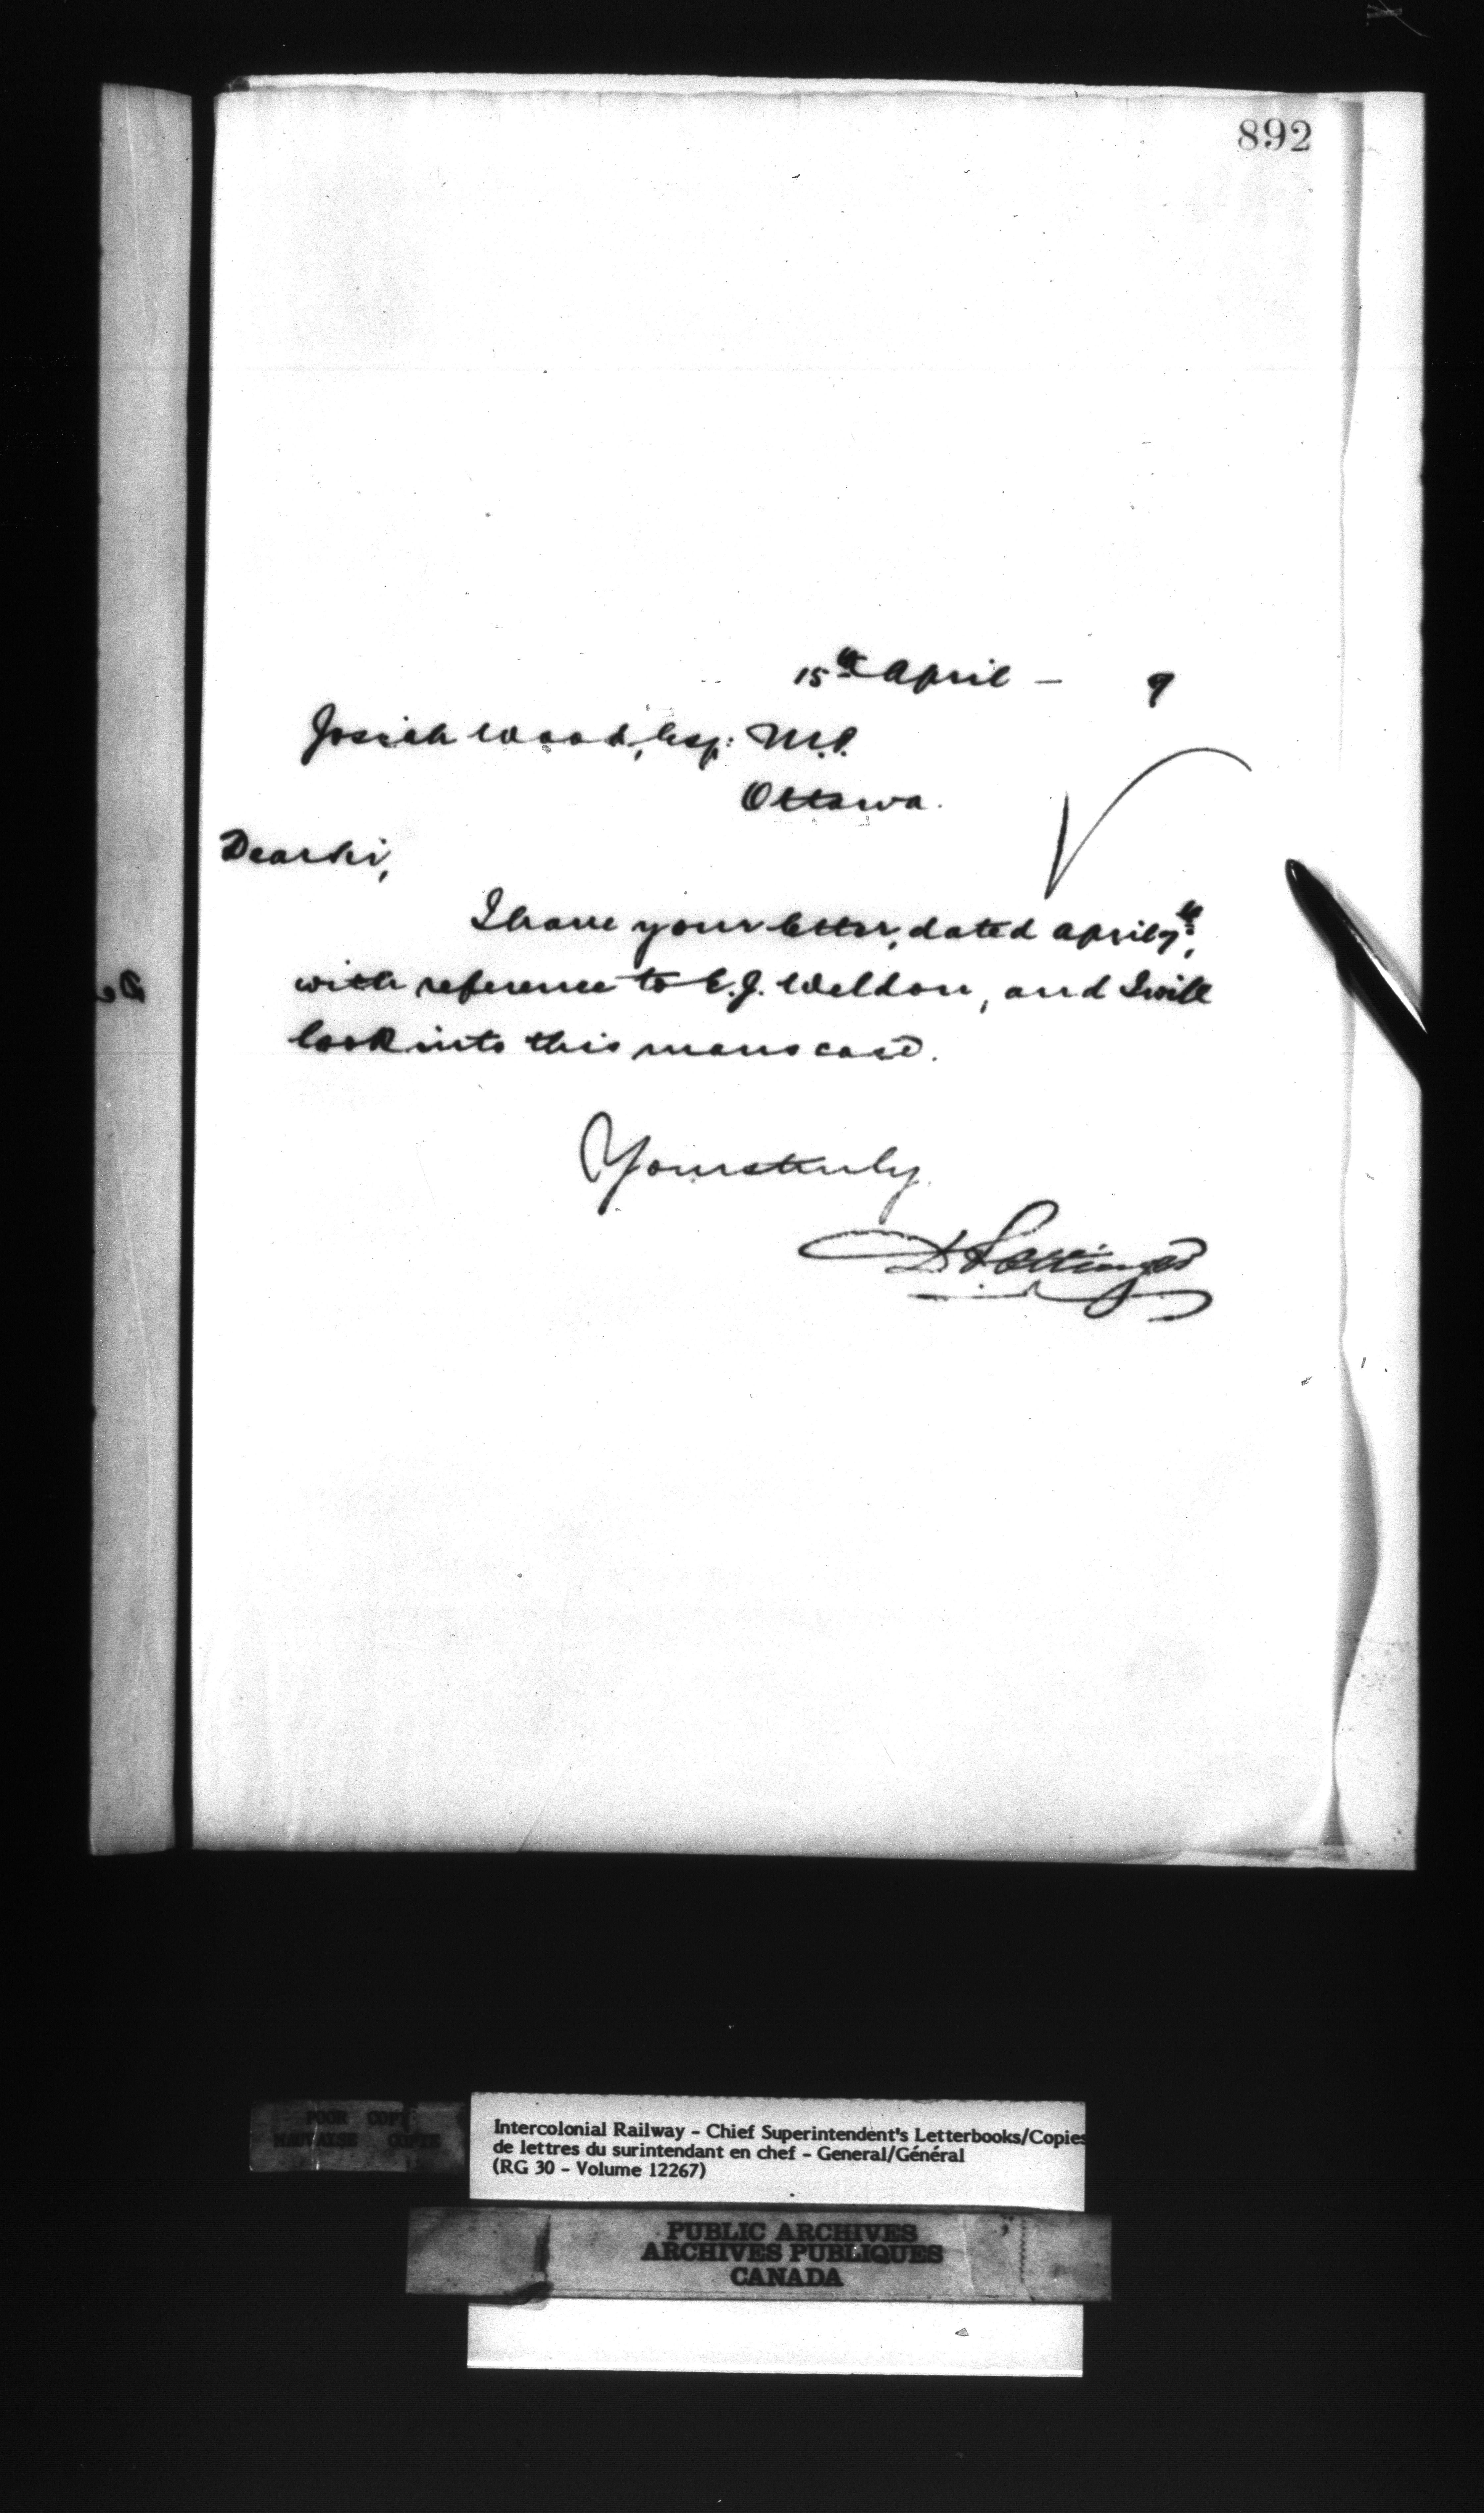 892
15th April — 9
Josiah Wood, Esq: M.P.
Ottawa.
Dear Sir,
I have your letter, dated April 7th,
with reference to E.J. Weldon, and I will
look into this mans case.
Yours truly,
D Pottinger
De
POOR COPY
MAUVAISE COPIE
Intercolonial Railway - Chief Superintendent's Letterbooks/Copies
de lettres du surintendant en chef - General/Général
(RG 30 - Volume 12267)
PUBLIC ARCHIVES
ARCHIVES PUBLIQUES
CANADA